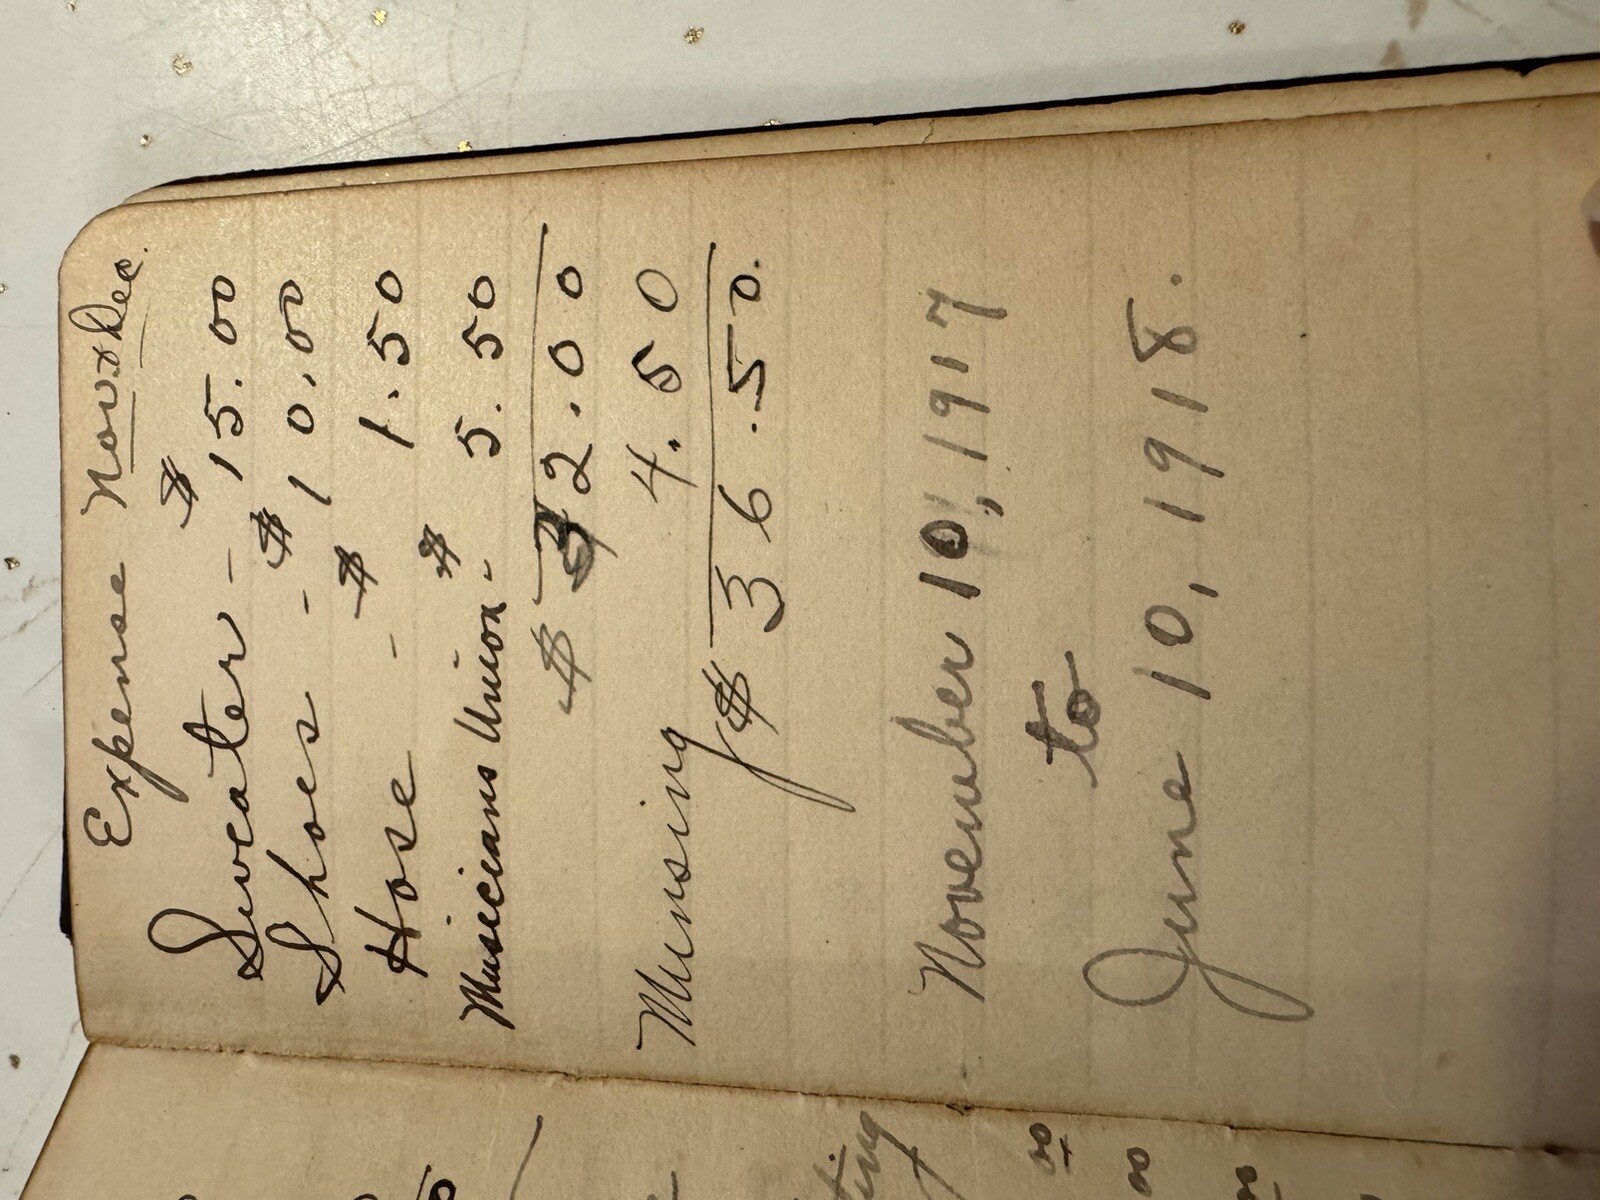 Expense Nov & Dec.
Sweater - $ 15.00
Shoes - $ 10.00
Hose - $ 1.50
Musicians Union - $ 5.50
$ 32.00
Munsing 4.50
$ 36.50.
November 10, 1917
to
June 10, 1918.